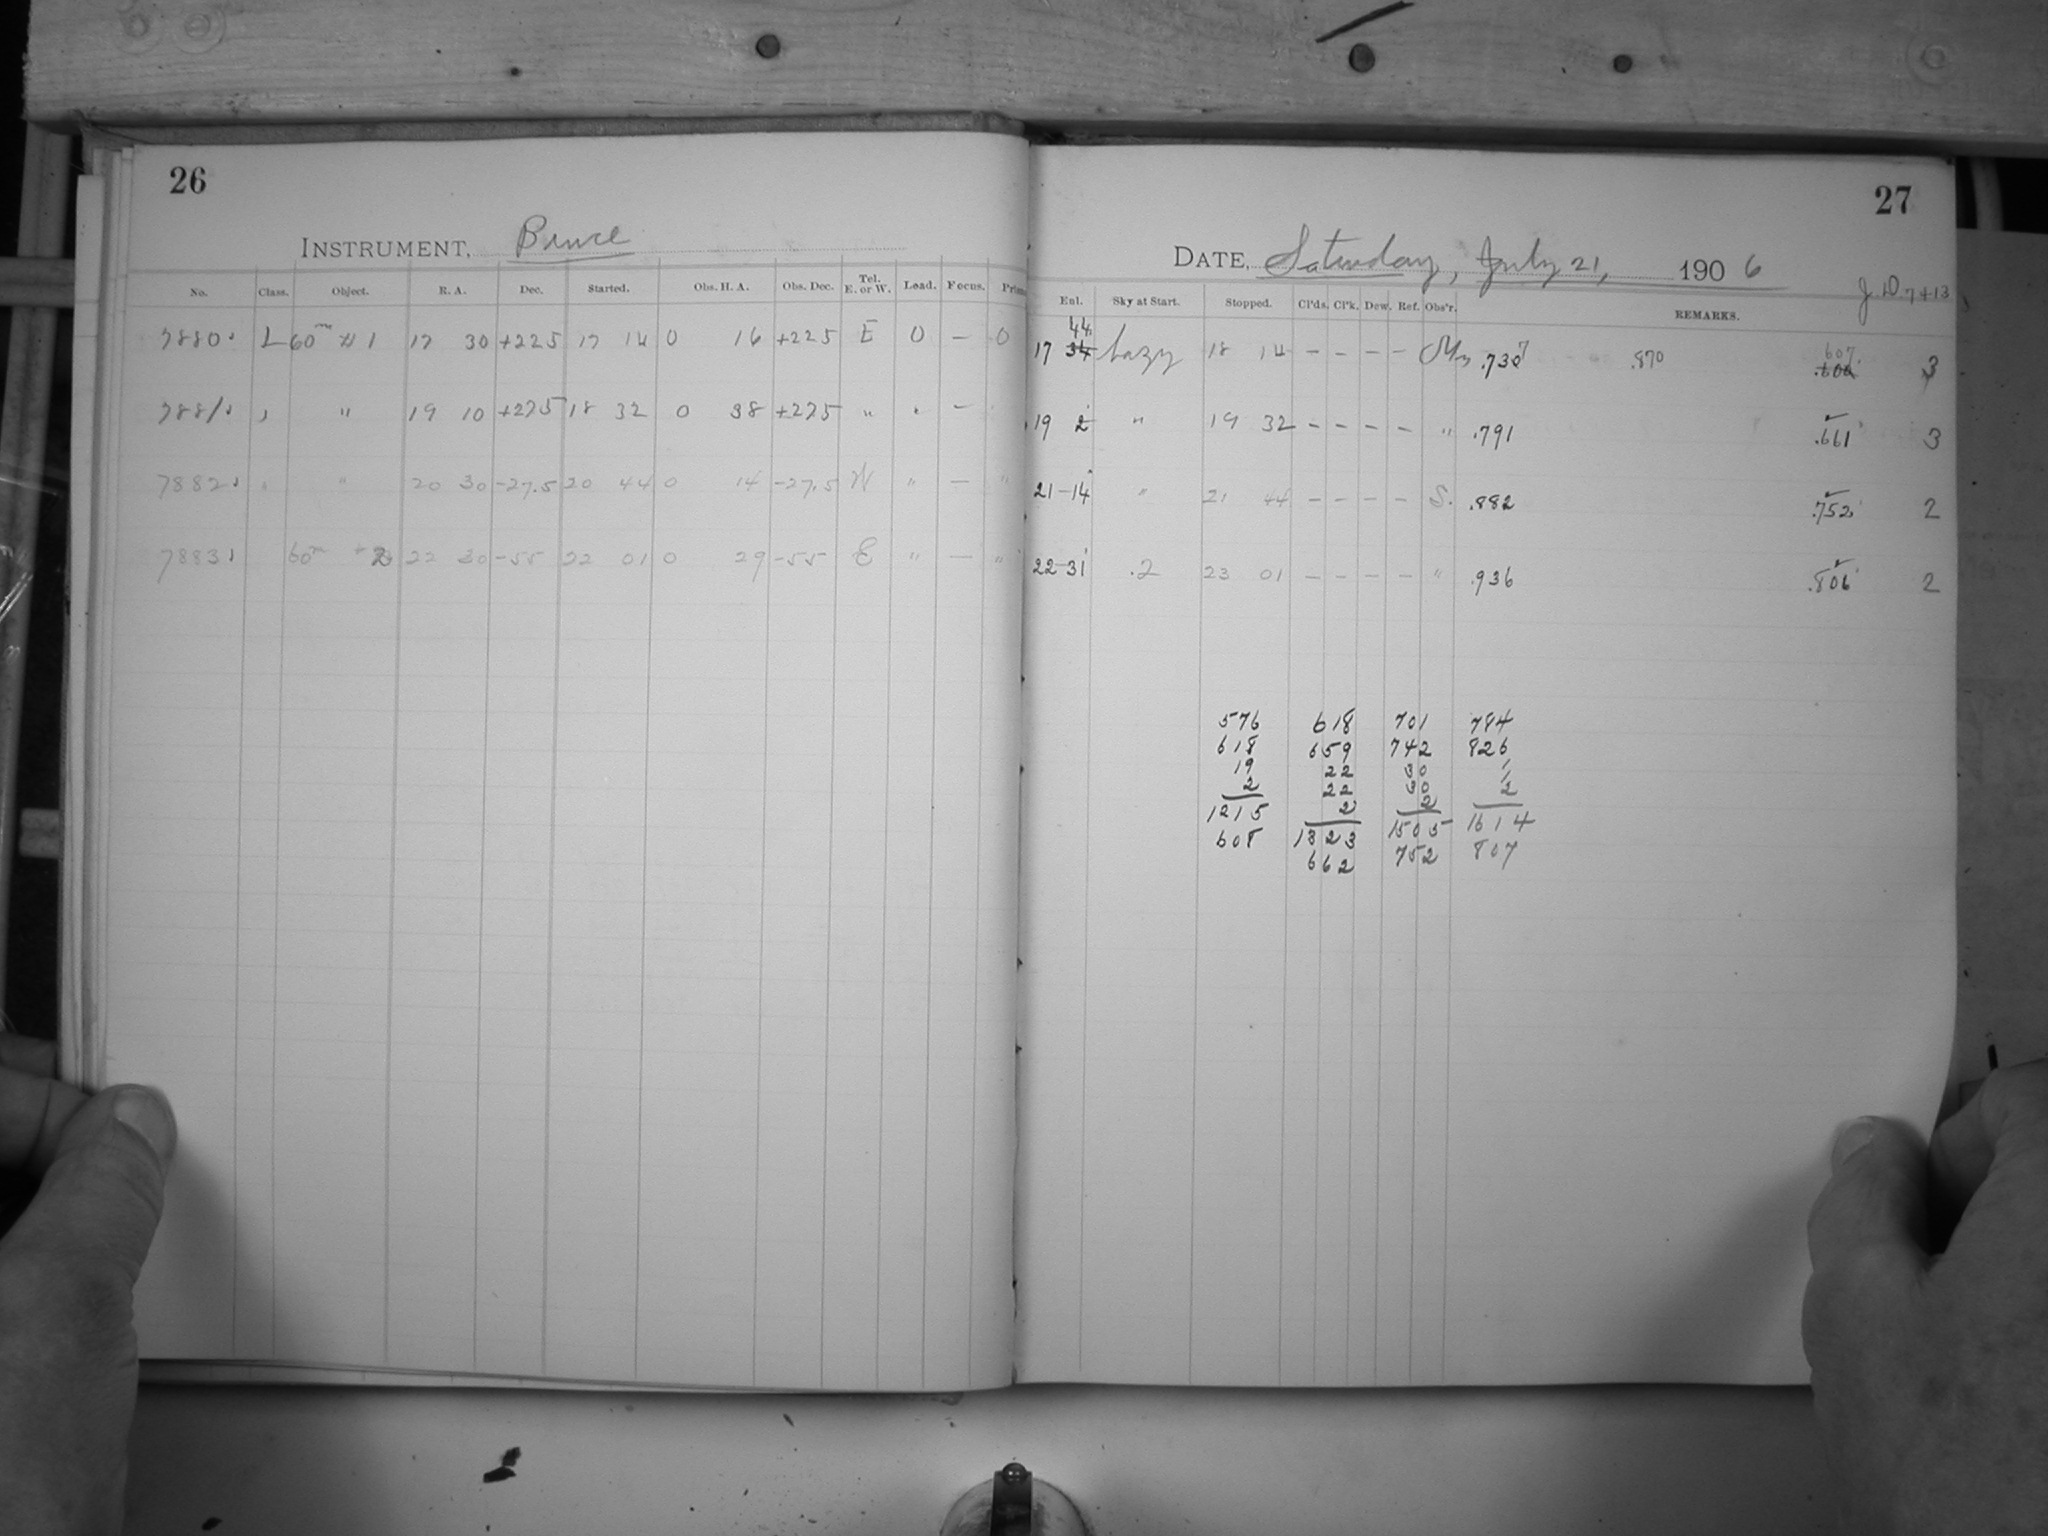 26
INSTRUMENT, Bruce
No. Class. Object. R. A. Dec. Started. Obs. H. A. Obs. Dec. Tel. E. or W. Load. Focus.
7880 L 60m #1 17 30 +22.5 17 14 0 16 +22.5 E 0 – 0
7881 " 19 10 +27.5 18 32 0 38 +27.5 " –
7882 " 20 30 -27.5 20 44 0 14 -27.5 W " – "
7883 60m 2 22 30 -55 22 01 0 29 -55 E " – "
27
DATE, Saturday, July 21, 1906
J.D. 7413
Enl. Sky at Start. Stopped. Cl'ds. Cl'k. Dew. Ref. Obs'r. REMARKS.
44 607
17 34 hazy 18 14 – – – – .730 7 .870 .600 3
19 2 " 19 32 – – – – " .791 .661 3
21-14 " 21 44 – – – – S. .882 .752 2
22-31 .2 23 01 – – – – " .936 .806 2
576 618 701 784
618 659 742 826
19 22 30 1
2 22 30 1
1215 2 2 2
608 1323 1505 1614
662 752 807